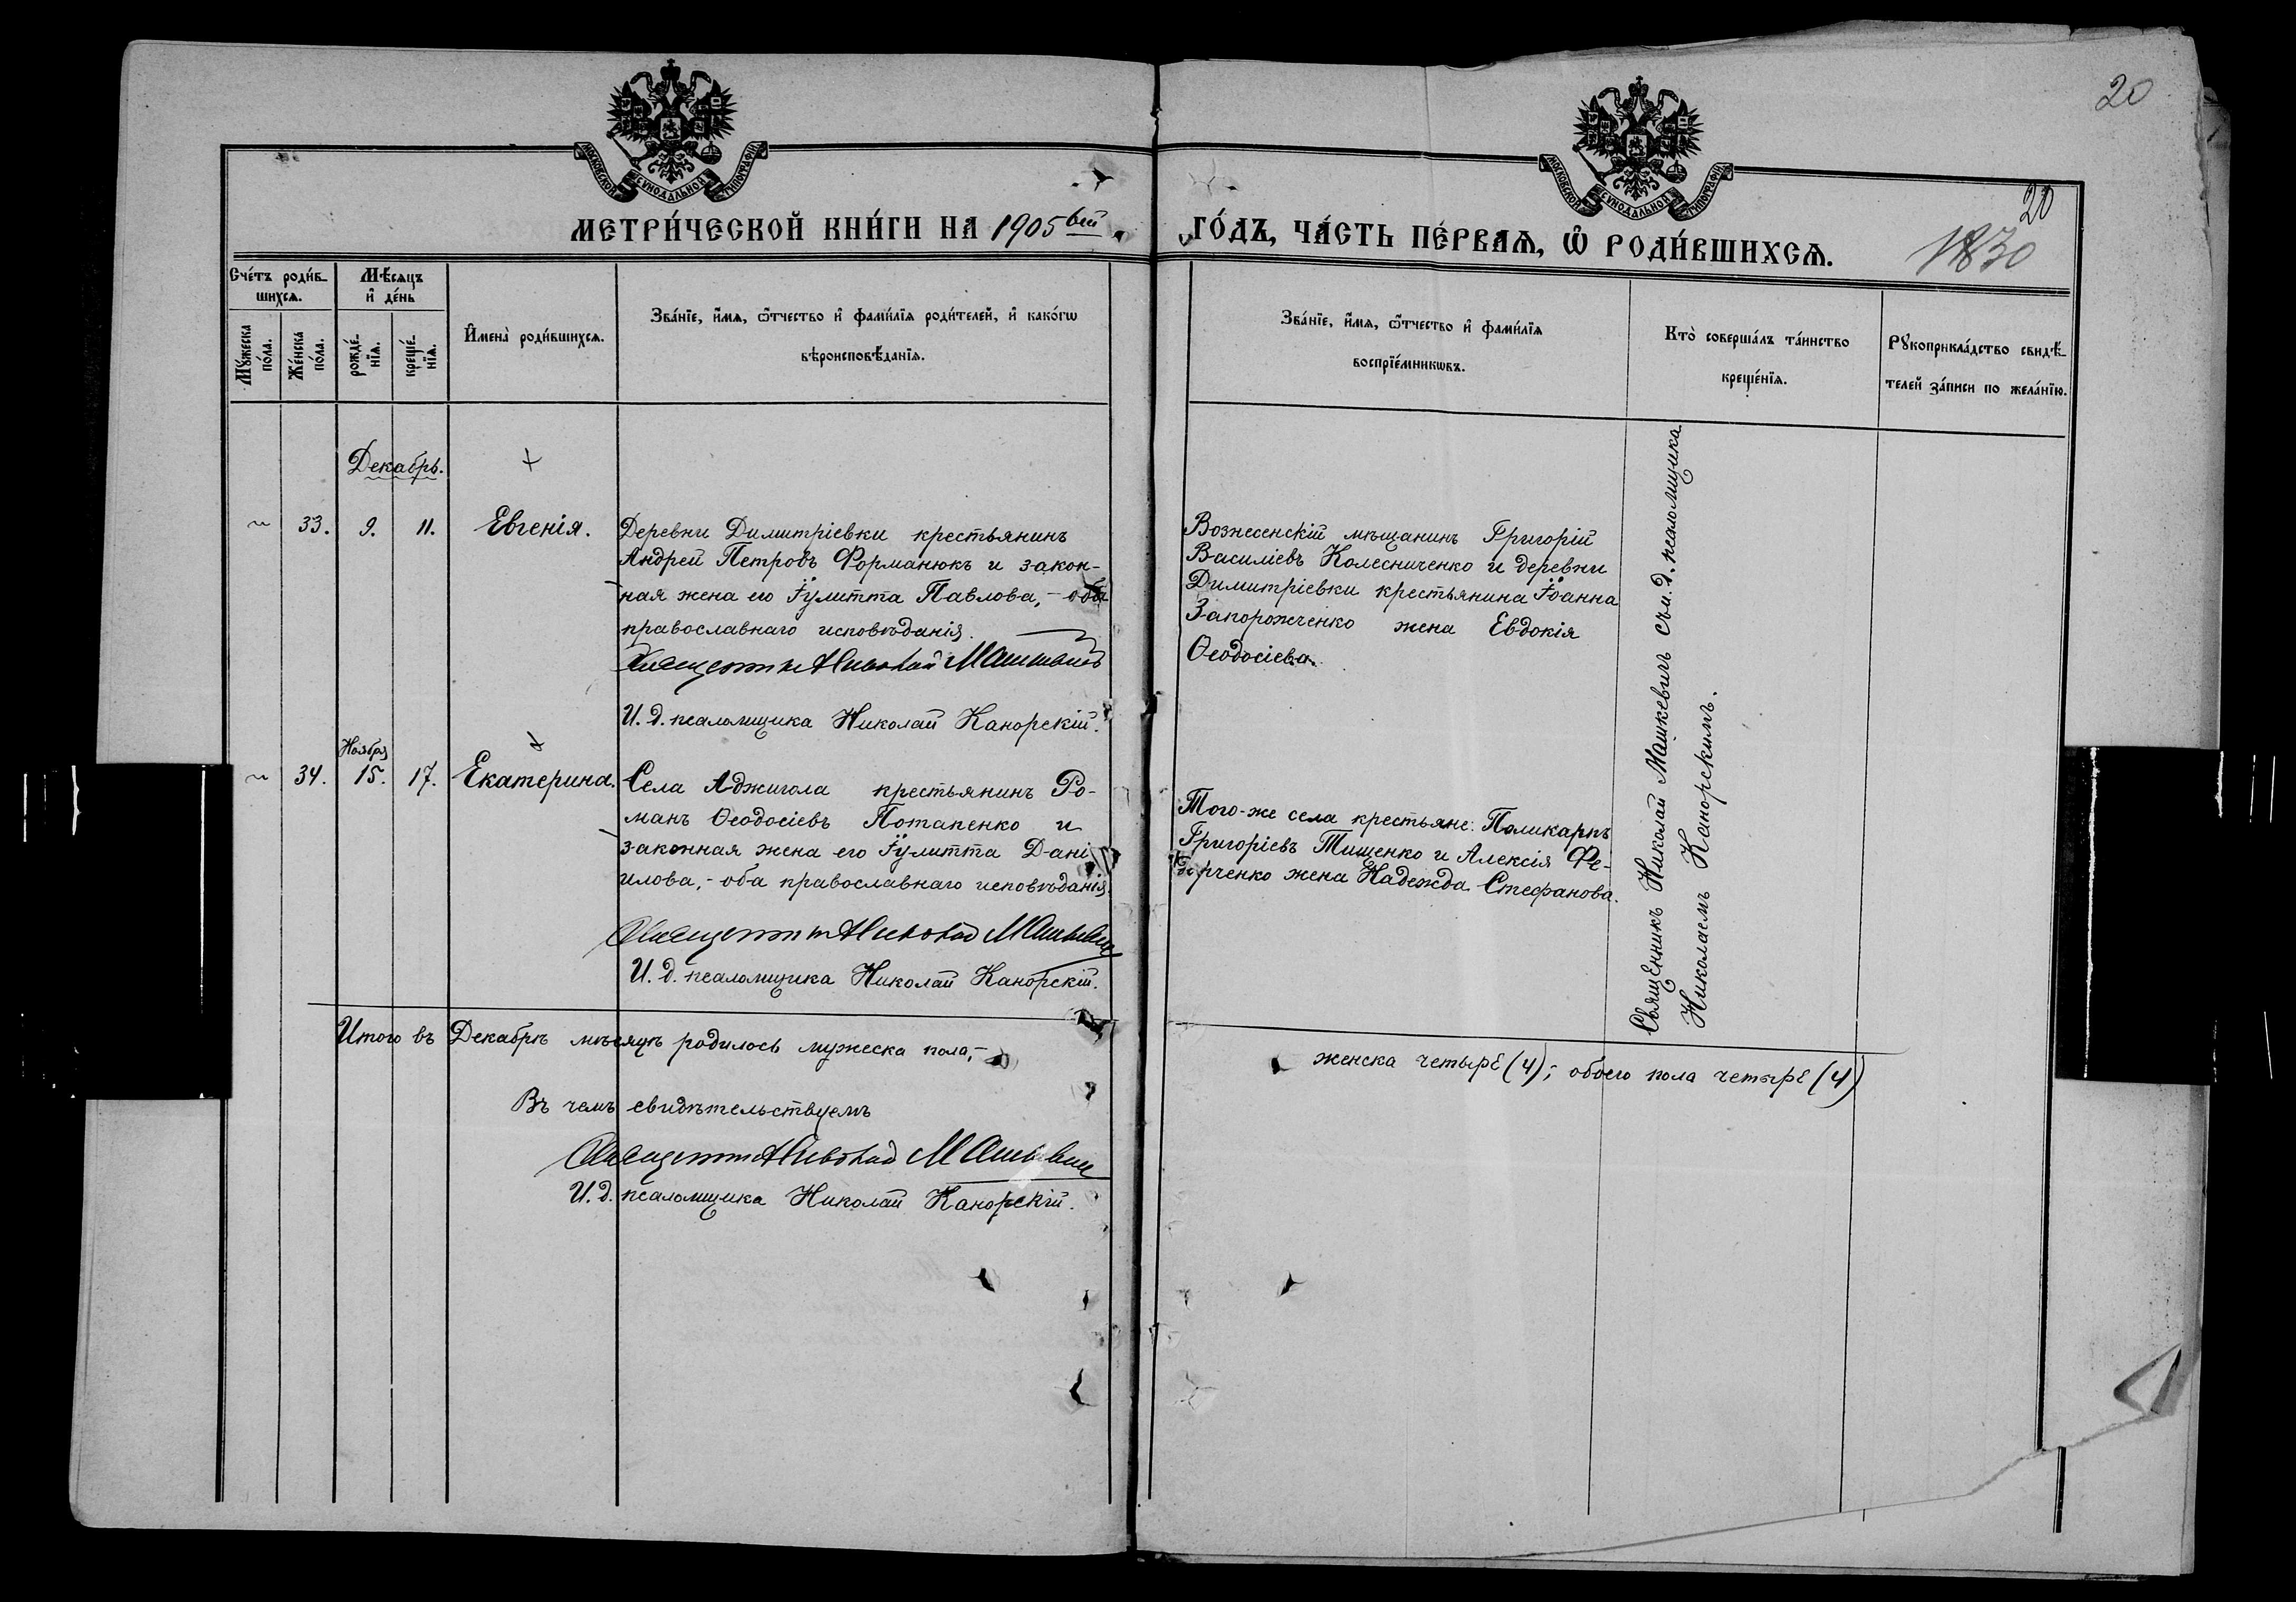 20
МОСКОВСКОЙ СѴНОДАЛЬНОЙ ТИПОГРАФІИ
МОСКОВСКОЙ СѴНОДАЛЬНОЙ ТИПОГРАФІИ
20
МЕТРИ́ЧЕСКОЙ КНИ́ГИ НА 1905 вый
ГО́ДЪ, ЧА́СТЬ ПЕ́РВАѦ, Ѡ҆ РОДИ́ВШИХСѦ.
1830
Сче́тъ роди́в-
шихсѧ.
Мѣ́сѧцъ
и҆ де́нь
Мꙋ́жеска
по́ла.
Же́нска
по́ла.
рожде́-
нїѧ.
креще́-
нїѧ.
И҆мена̀ роди́вшихсѧ.
Зва́нїе, и҆́мѧ, ѻ҆́тчество и҆ фами́лїѧ роди́телей, и҆ како́гѡ
вѣроисповѣ́данїѧ.
Зва́нїе, и҆́мѧ, ѻ҆́тчество и҆ фами́лїѧ
воспрїе́мникѡвъ.
Кто̀ соверша́лъ та́инство
креще́нїѧ.
Рꙋкоприкла́дство свидѣ́-
телей за́писи по жела́нїю.
Декабрь.
33. 9. 11. Евгенія.
Деревни Димитріевки крестьянинъ
Андрей Петровъ Форманюкъ и закон-
ная жена его Іулитта Павлова, - оба
православнаго исповѣданія.
Священникъ Николай Машкевичъ
И. д. псаломщика Николай Канорскій.
Вознесенскій мѣщанинъ Григорій
Василіевъ Колесниченко и деревни
Димитріевки крестьянина Іоанна
Запорожченко жена Евдокія
Ѳеодосіева.
Священникъ Николай Машкевичъ съ и. д. псаломщика
Николаемъ Канорскимъ.
Ноября
34. 15. 17. Екатерина.
Села Аджигола крестьянинъ Ро-
манъ Ѳеодосіевъ Потапенко и
законная жена его Іулитта Дані-
илова, - оба православнаго исповѣданія.
Священникъ Николай Машкевичъ
И. д. псаломщика Николай Канорскій.
Того-же села крестьяне: Поликарпъ
Григоріевъ Тищенко и Алексія Фе-
дорченко жена Надежда Стефанова.
Итого въ Декабрѣ мѣсяцѣ родилось мужеска пола, -
женска четыре (4); обоего пола четыре (4)
Въ чемъ свидѣтельствуемъ
Священникъ Николай Машкевичъ
И. д. псаломщика Николай Канорскій.